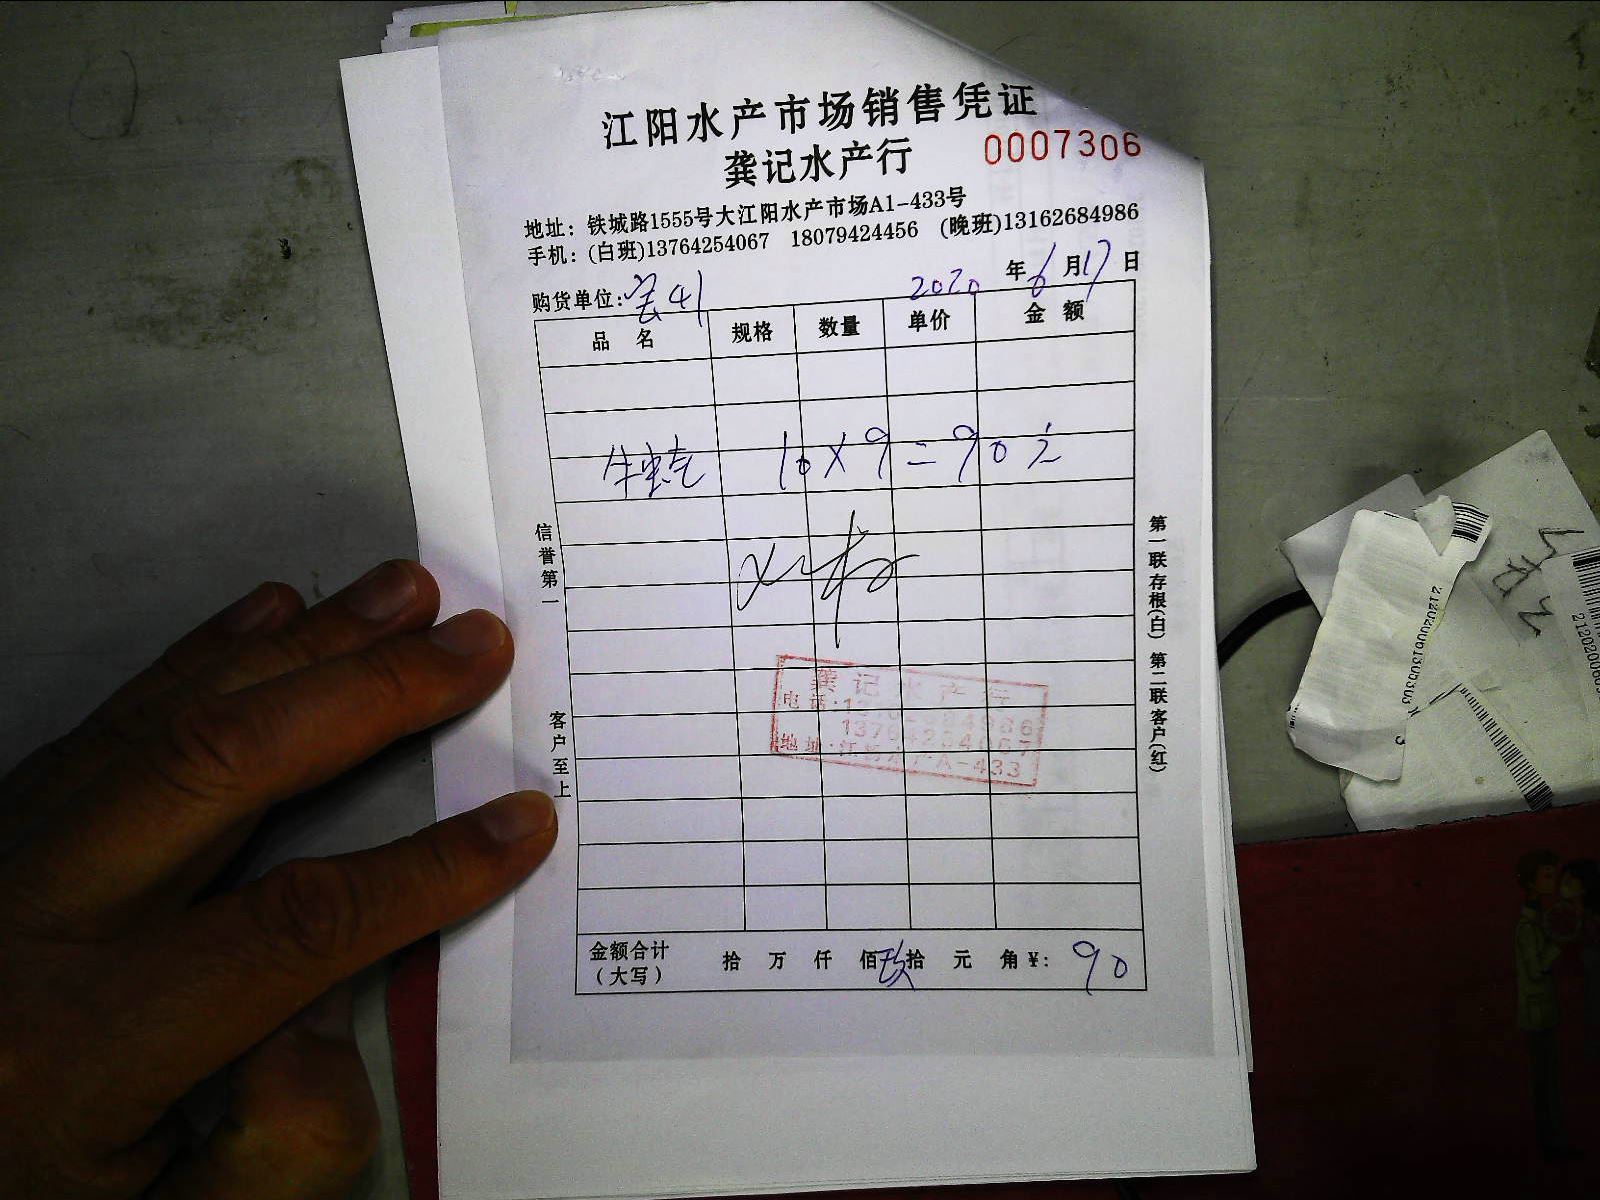 江阳水产市场销售凭证
龚记水产行 0007306
地址：铁城路1555号大江阳水产市场A1-433号
手机：(白班)13764254067 18079424456 (晚班)13162684986
2020 年 6 月 17 日
购货单位:
品 名 规格 数量 单价 金 额
10×9=90元
信誉第一
客户至上
第一联存根(白) 第二联客户(红)
龚记水产行
电话:
地址: A-433
金额合计 拾 万 仟 佰 玖拾 元 角 ¥: 90
(大写)